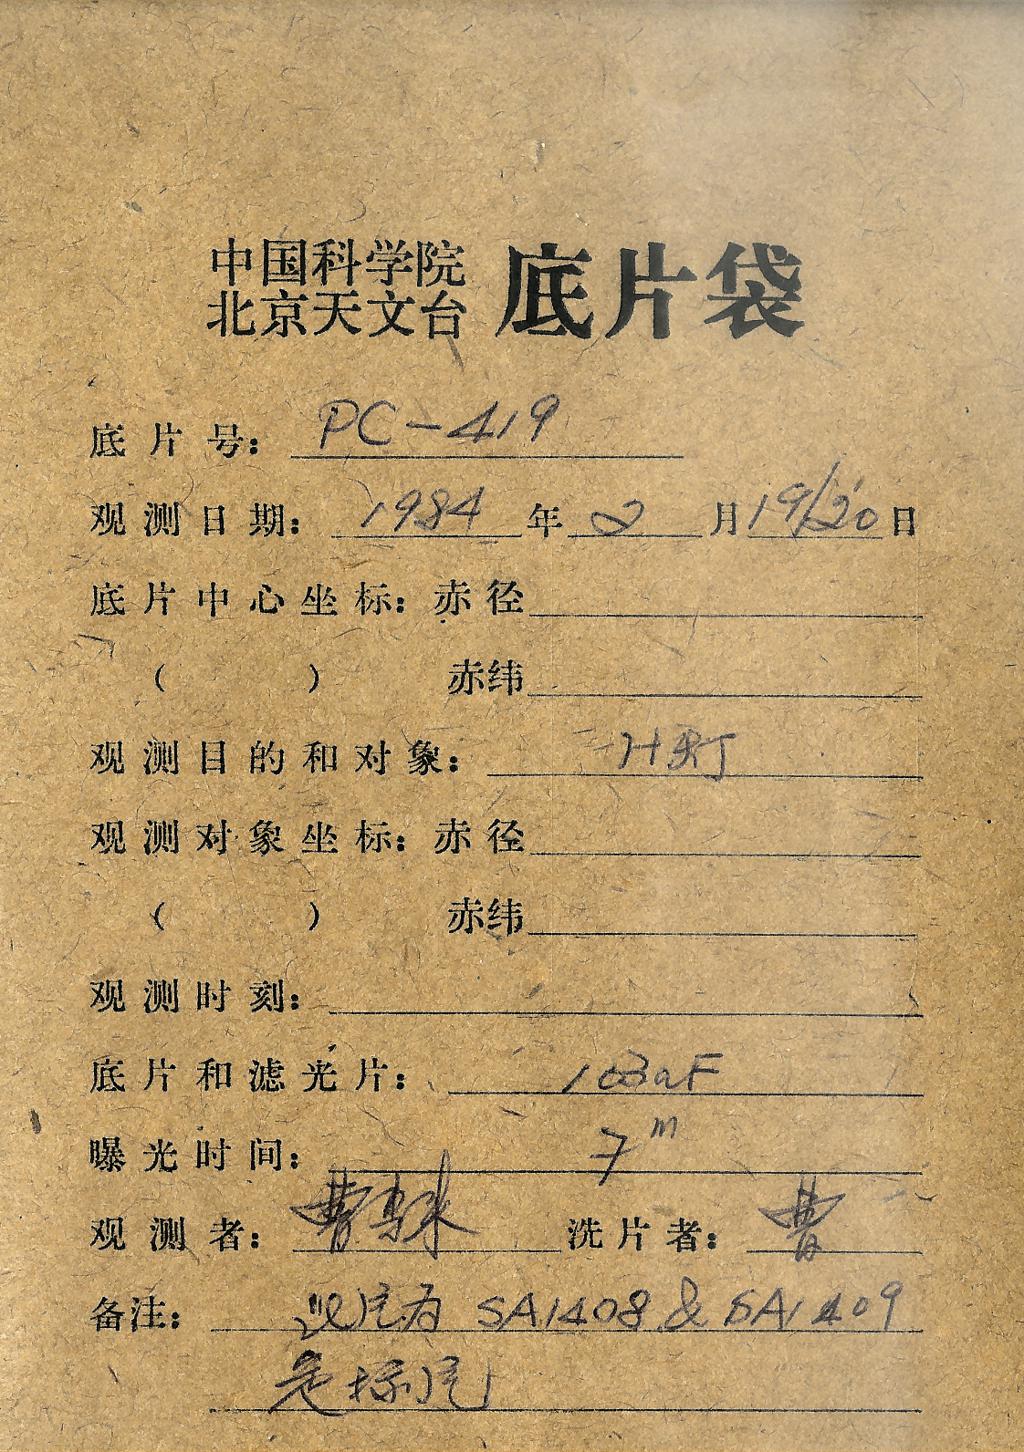 中国科学院
北京天文台 底片袋
底片号: PC-419
观测日期: 1984 年 2 月 19/20 日
底片中心坐标: 赤径
( ) 赤纬
观测目的和对象: H灯
观测对象坐标: 赤径
( ) 赤纬
观测时刻:
底片和滤光片: 103aF
曝光时间: 7m
观测者: 曹 洗片者: 曹
备注: 此片为 SA1408 & SA1409
定标片